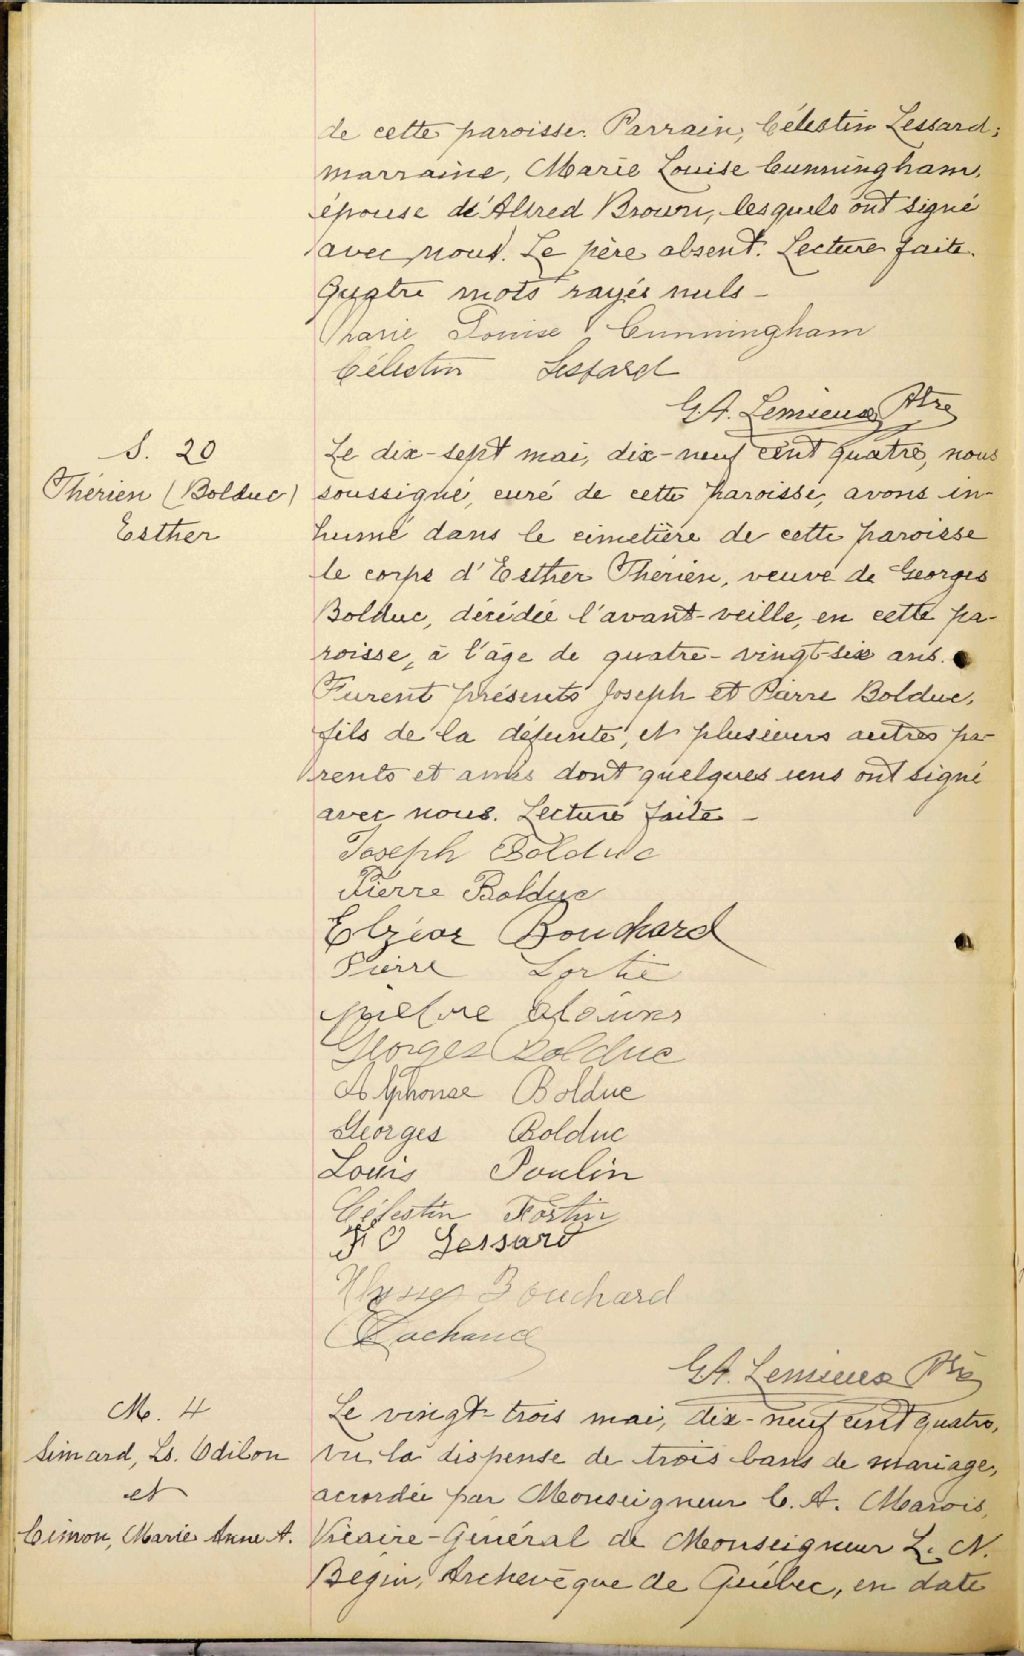 de cette paroisse. Parrain, Célestin Lessard;
marraine, Marie Louise Cunningham,
épouse de Alfred Brown, lesquels ont signé
avec nous. Le père absent. Lecture faite.
Quatre mots rayés nuls -
Marie Louise Cunningham
Célestin Lessard
G.A. Lemieux Ptre
S. 20
Thérien (Bolduc)
Esther
Le dix-sept mai, dix-neuf cent quatre, nous
soussigné, curé de cette paroisse, avons in-
humé dans le cimetière de cette paroisse
le corps d'Esther Thérien, veuve de Georges
Bolduc, décédée l'avant-veille, en cette pa-
roisse, à l'âge de quatre-vingt-six ans.
Furent présents Joseph et Pierre Bolduc,
fils de la défunte, et plusieurs autres pa-
rents et amis dont quelques uns ont signé
avec nous. Lecture faite -
Joseph Bolduc
Pierre Bolduc
Elzéar Bouchard
Pierre Lortie
Georges Bolduc
Alphonse Bolduc
Georges Bolduc
Louis Poulin
Célestin Fortin
F O Lessard
Ulysse Bouchard
Lachance
G.A. Lemieux Ptre
M. 4
Simard, Ls. Odilon
et
Cimon, Marie Anne A.
Le vingt-trois mai, dix-neuf cent quatre,
vu la dispense de trois bans de mariage,
accordée par Monseigneur C. A. Marois,
Vicaire-Général de Monseigneur L. N.
Bégin, Archevêque de Québec, en date